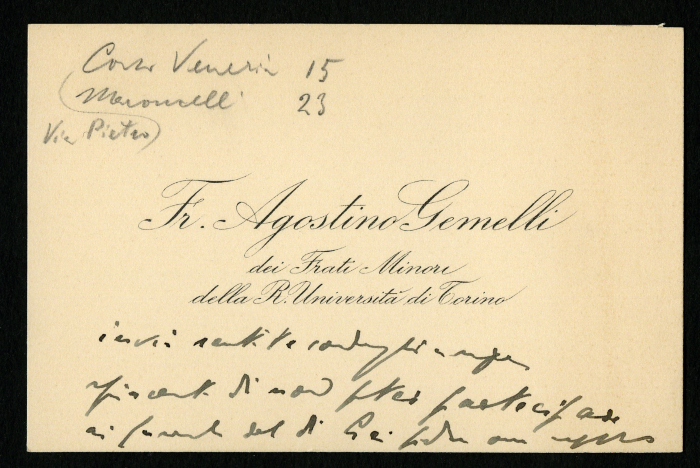 Corso Venezia 15
Maroncelli 23
Via Pietro
Fr. Agostino Gemelli
dei Frati Minori
della R. Università di Torino
invia sentite condoglianze
di non poter partecipare
ai funerali del di Lei